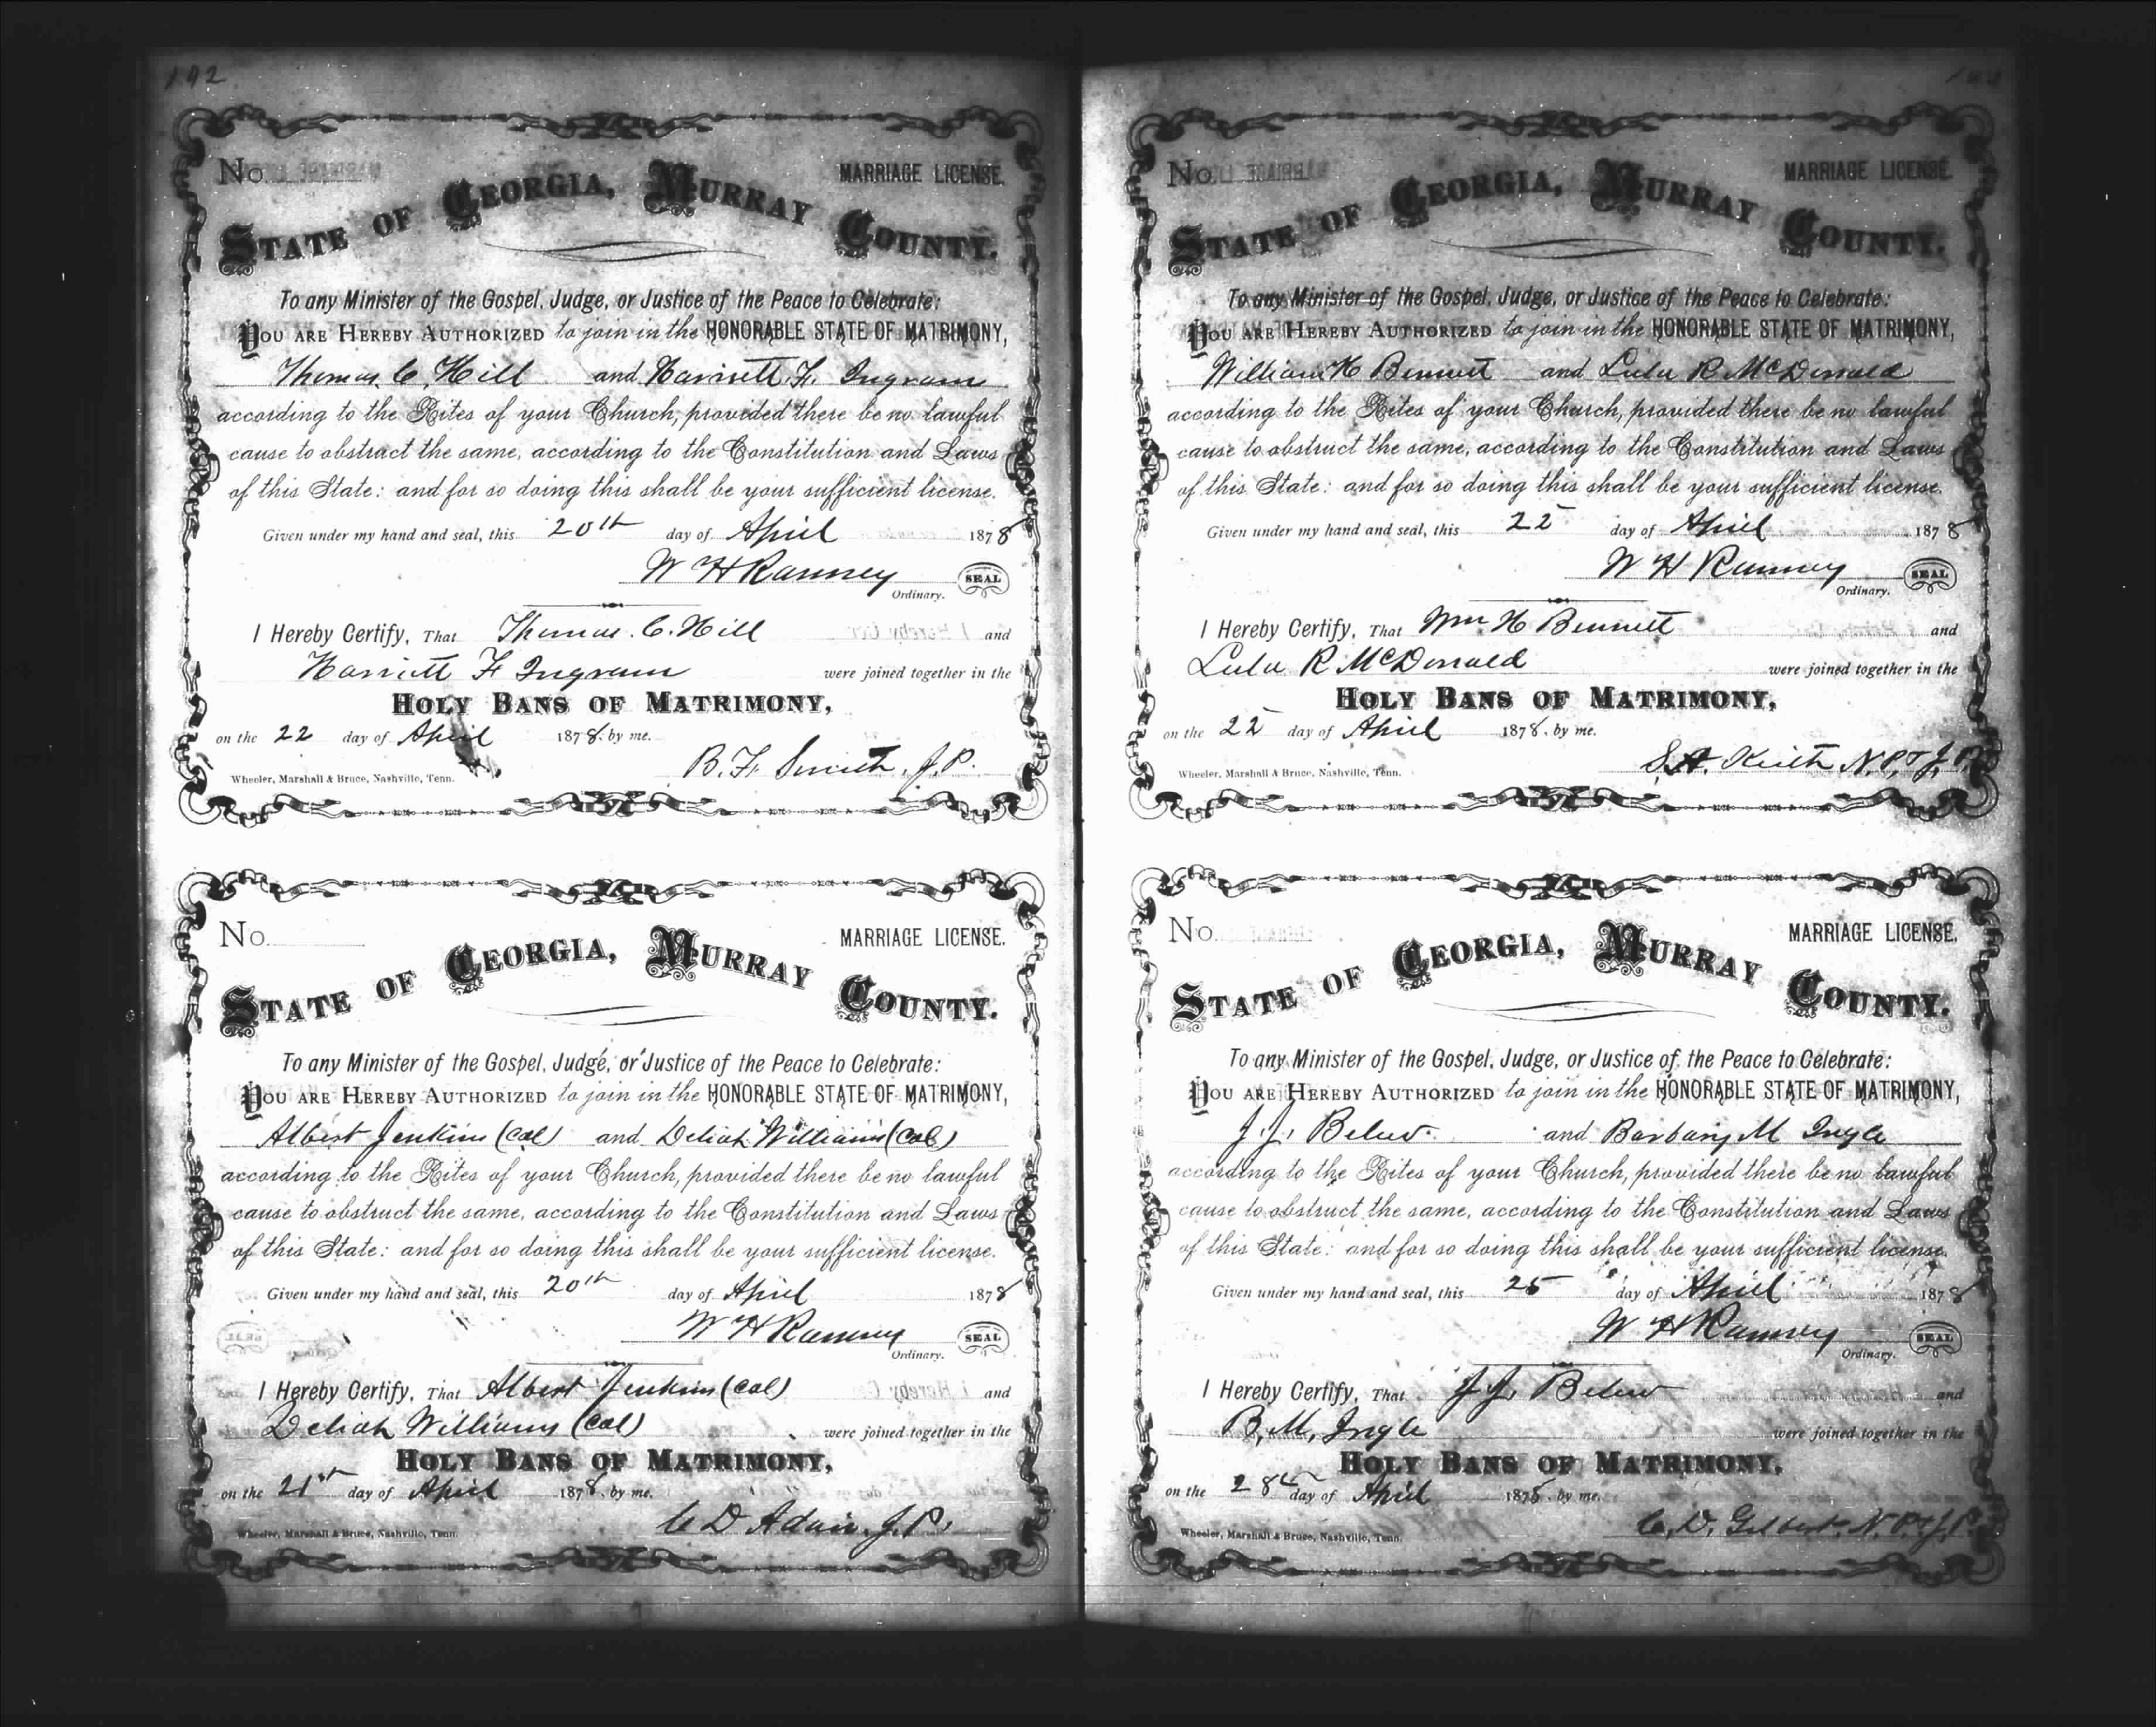 192
No.
MARRIAGE LICENSE.
STATE OF GEORGIA, MURRAY COUNTY.
To any Minister of the Gospel, Judge, or Justice of the Peace to Celebrate:
YOU ARE HEREBY AUTHORIZED to join in the HONORABLE STATE OF MATRIMONY,
Thomas C. Hill and Harriett F. Ingram
according to the Rites of your Church, provided there be no lawful
cause to obstruct the same, according to the Constitution and Laws
of this State: and for so doing this shall be your sufficient license.
Given under my hand and seal, this 20th day of April 1878
W H Ramsey SEAL
Ordinary.
I Hereby Certify, That Thomas. C. Hill and
Harriett F Ingram were joined together in the
HOLY BANS OF MATRIMONY,
on the 22 day of April 1878. by me.
B. F. Smith, J.P.
Wheeler, Marshall & Bruce, Nashville, Tenn.
No.
MARRIAGE LICENSE.
STATE OF GEORGIA, MURRAY COUNTY.
To any Minister of the Gospel, Judge, or Justice of the Peace to Celebrate:
YOU ARE HEREBY AUTHORIZED to join in the HONORABLE STATE OF MATRIMONY,
Albert Jenkins (Col) and Deliah Williams (Col)
according to the Rites of your Church, provided there be no lawful
cause to obstruct the same, according to the Constitution and Laws
of this State: and for so doing this shall be your sufficient license.
Given under my hand and seal, this 20th day of April 1878
W H Ramsey SEAL
Ordinary.
I Hereby Certify, That Albert Jenkins (Col) and
Deliah Williams (Col) were joined together in the
HOLY BANS OF MATRIMONY,
on the 21st day of April 1878. by me.
C D Adair, J.P.
Wheeler, Marshall & Bruce, Nashville, Tenn.
No.
MARRIAGE LICENSE.
STATE OF GEORGIA, MURRAY COUNTY.
To any Minister of the Gospel, Judge, or Justice of the Peace to Celebrate:
YOU ARE HEREBY AUTHORIZED to join in the HONORABLE STATE OF MATRIMONY,
William H Bennett and Lula R McDonald
according to the Rites of your Church, provided there be no lawful
cause to obstruct the same, according to the Constitution and Laws
of this State: and for so doing this shall be your sufficient license.
Given under my hand and seal, this 25 day of April 1878
W H Ramsey SEAL
Ordinary.
I Hereby Certify, That Wm H Bennett and
Lula R McDonald were joined together in the
HOLY BANS OF MATRIMONY,
on the 25 day of April 1878. by me.
S. A. Keith N.P. & J.P.
Wheeler, Marshall & Bruce, Nashville, Tenn.
No.
MARRIAGE LICENSE.
STATE OF GEORGIA, MURRAY COUNTY.
To any Minister of the Gospel, Judge, or Justice of the Peace to Celebrate:
YOU ARE HEREBY AUTHORIZED to join in the HONORABLE STATE OF MATRIMONY,
J. J. Belew. and Barbary M Ingle
according to the Rites of your Church, provided there be no lawful
cause to obstruct the same, according to the Constitution and Laws
of this State: and for so doing this shall be your sufficient license.
Given under my hand and seal, this 25 day of April 1878
W H Ramsey SEAL
Ordinary.
I Hereby Certify, That J. J. Belew and
B. M. Ingle were joined together in the
HOLY BANS OF MATRIMONY,
on the 28th day of April 1878. by me.
C. D. Gilbert. N. P. & J. P.
Wheeler, Marshall & Bruce, Nashville, Tenn.